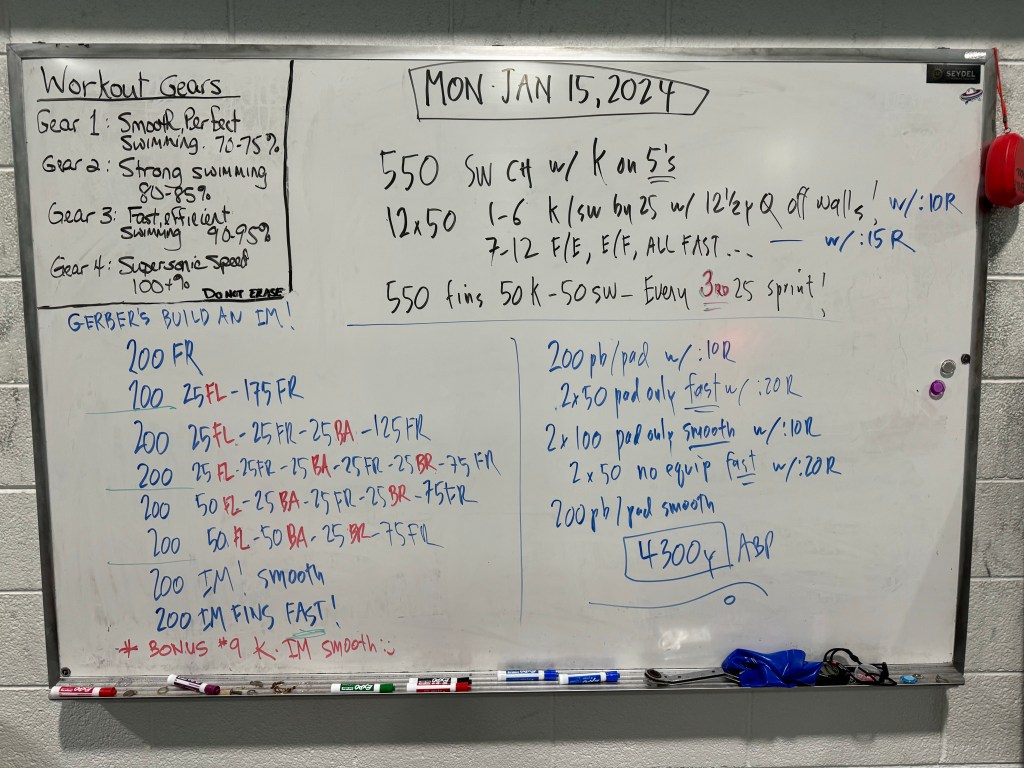 Workout Gears
Gear 1: Smooth, Perfect
Swimming. 70-75%
Gear 2: Strong swimming
80-85%
Gear 3: Fast, efficient
Swimming 90-95%
Gear 4: Supersonic Speed
100+%
DO NOT ERASE
MON. JAN 15, 2024
SEYDEL
550 SW CH w/ K on 5's
12x50 1-6 K/sw by 25 w/ 12 1/2 y Q off walls! w/:10R
7-12 F/E, E/F, ALL FAST... — w/:15R
550 fins 50K-50sw- Every 3RD 25 sprint!
GERBER'S BUILD AN IM!
200 FR
200 25FL-175FR
200 25FL-25FR-25BA-125FR
200 25FL-25FR-25BA-25FR-25BR-75FR
200 50FL-25BA-25FR-25BR-75FR
200 50FL-50BA-25BR-75FR
200 IM! smooth
200 IM FINS FAST!
* BONUS #9 K-IM smooth :)
200 pb/pad w/:10R
2x50 pad only fast w/:20R
2x100 pad only smooth w/:10R
2x50 no equip fast w/:20R
200 pb/pad smooth
4300y ABP
EXPO
EXPO
EXPO